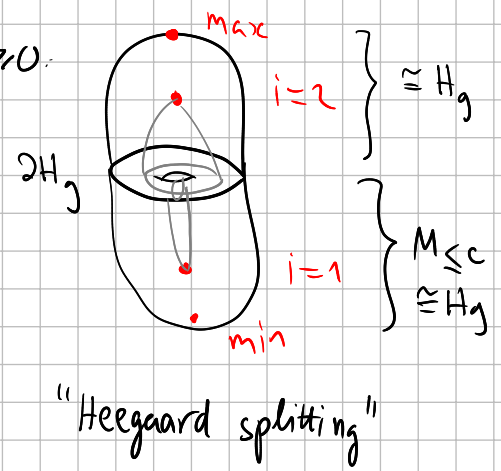 max
≥0.
i=2
≅ H_g
∂H_g
M_≤c
i=1
≅H_g
min
"Heegaard splitting"